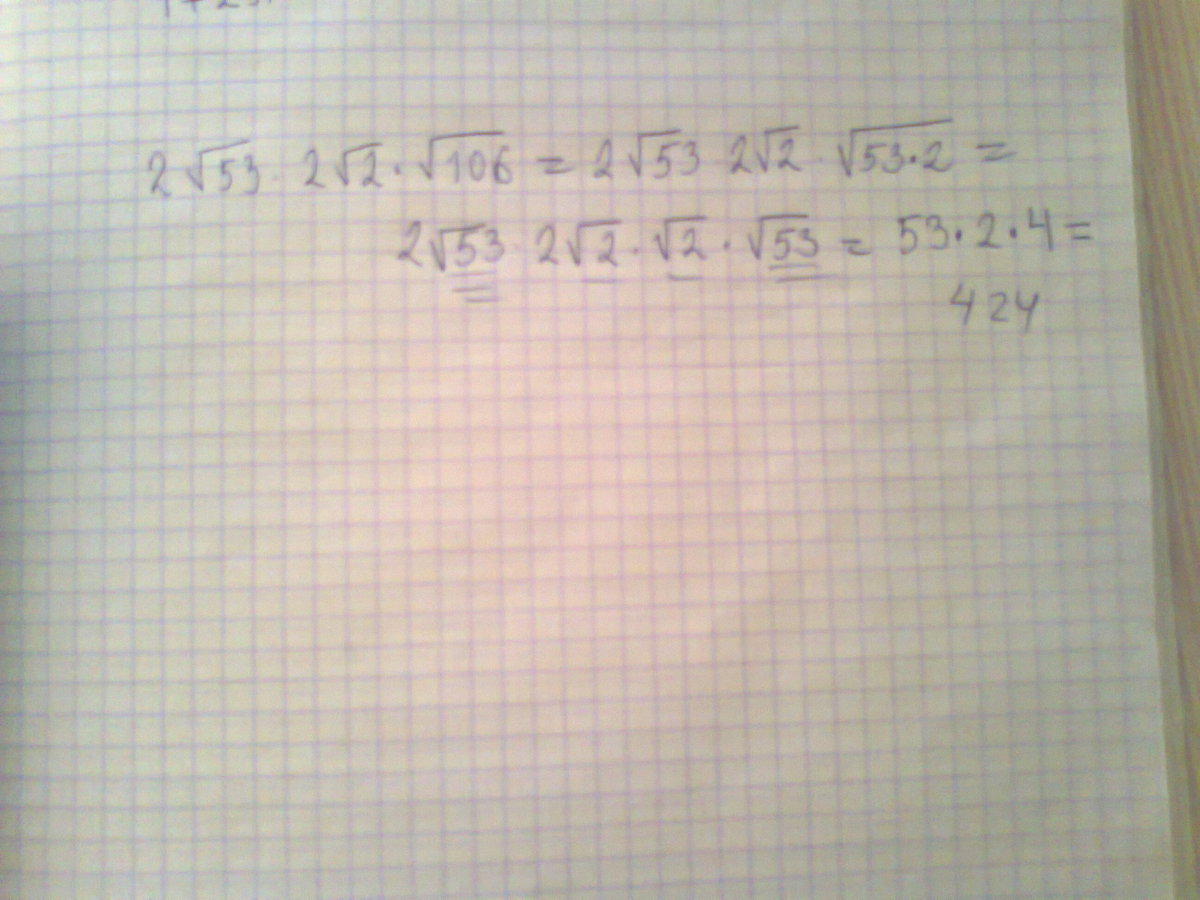 2√53 · 2√2 · √106 = 2√53 2√2 · √53·2 =
2√53 · 2√2 · √2 · √53 = 53·2·4=
424